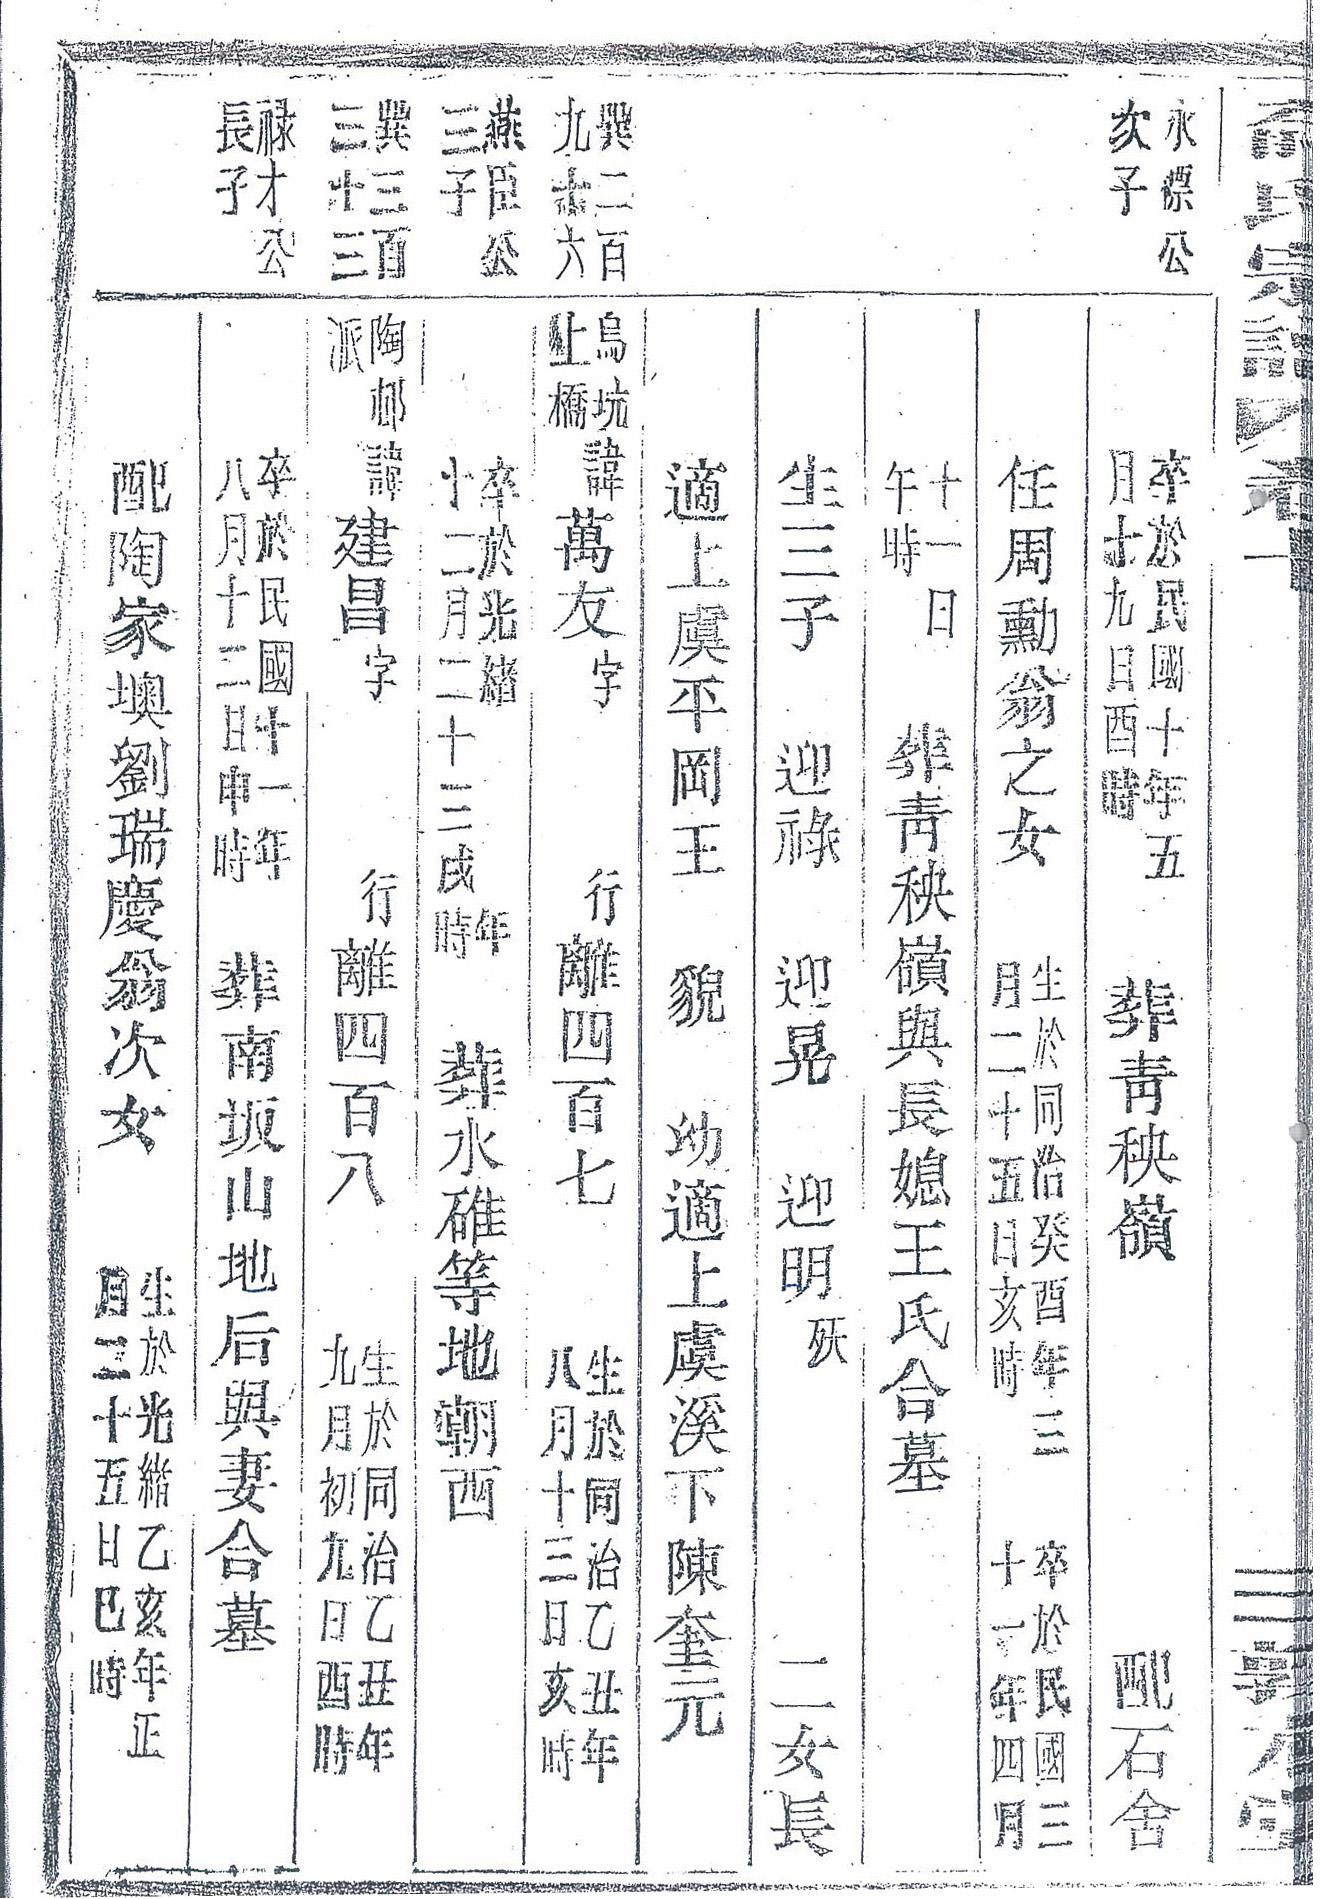 氏宗譜
永標公
次子
卒於民國十年五
月十九日酉時
葬青秧嶺
配石舍
任周勳翁之女
生於同治癸酉年三
月二十五日亥時
卒於民國三
十一年四月
十一日
午時
葬青秧嶺與長媳王氏合墓
生三子 迎祿 迎晃 迎明 殀 二女長
適上虞平岡王 貌 幼適上虞溪下陳奎元
巽二百
九十六
烏坑
上橋
諱萬友字 行離四百七
生於同治乙丑年
八月十三日亥時
燕臣公
三子
卒於光緒 年
十二月二十三戌時
葬水碓等地朝西
巽三百
三十三
陶邨
派
諱建昌字 行離四百八
生於同治乙丑年
九月初九日酉時
祿才公
長子
卒於民國十一年
八月十二日申時
葬南坂山地后與妻合墓
配陶家墺劉瑞慶翁次女
生於光緒乙亥年正
月二十五日巳時